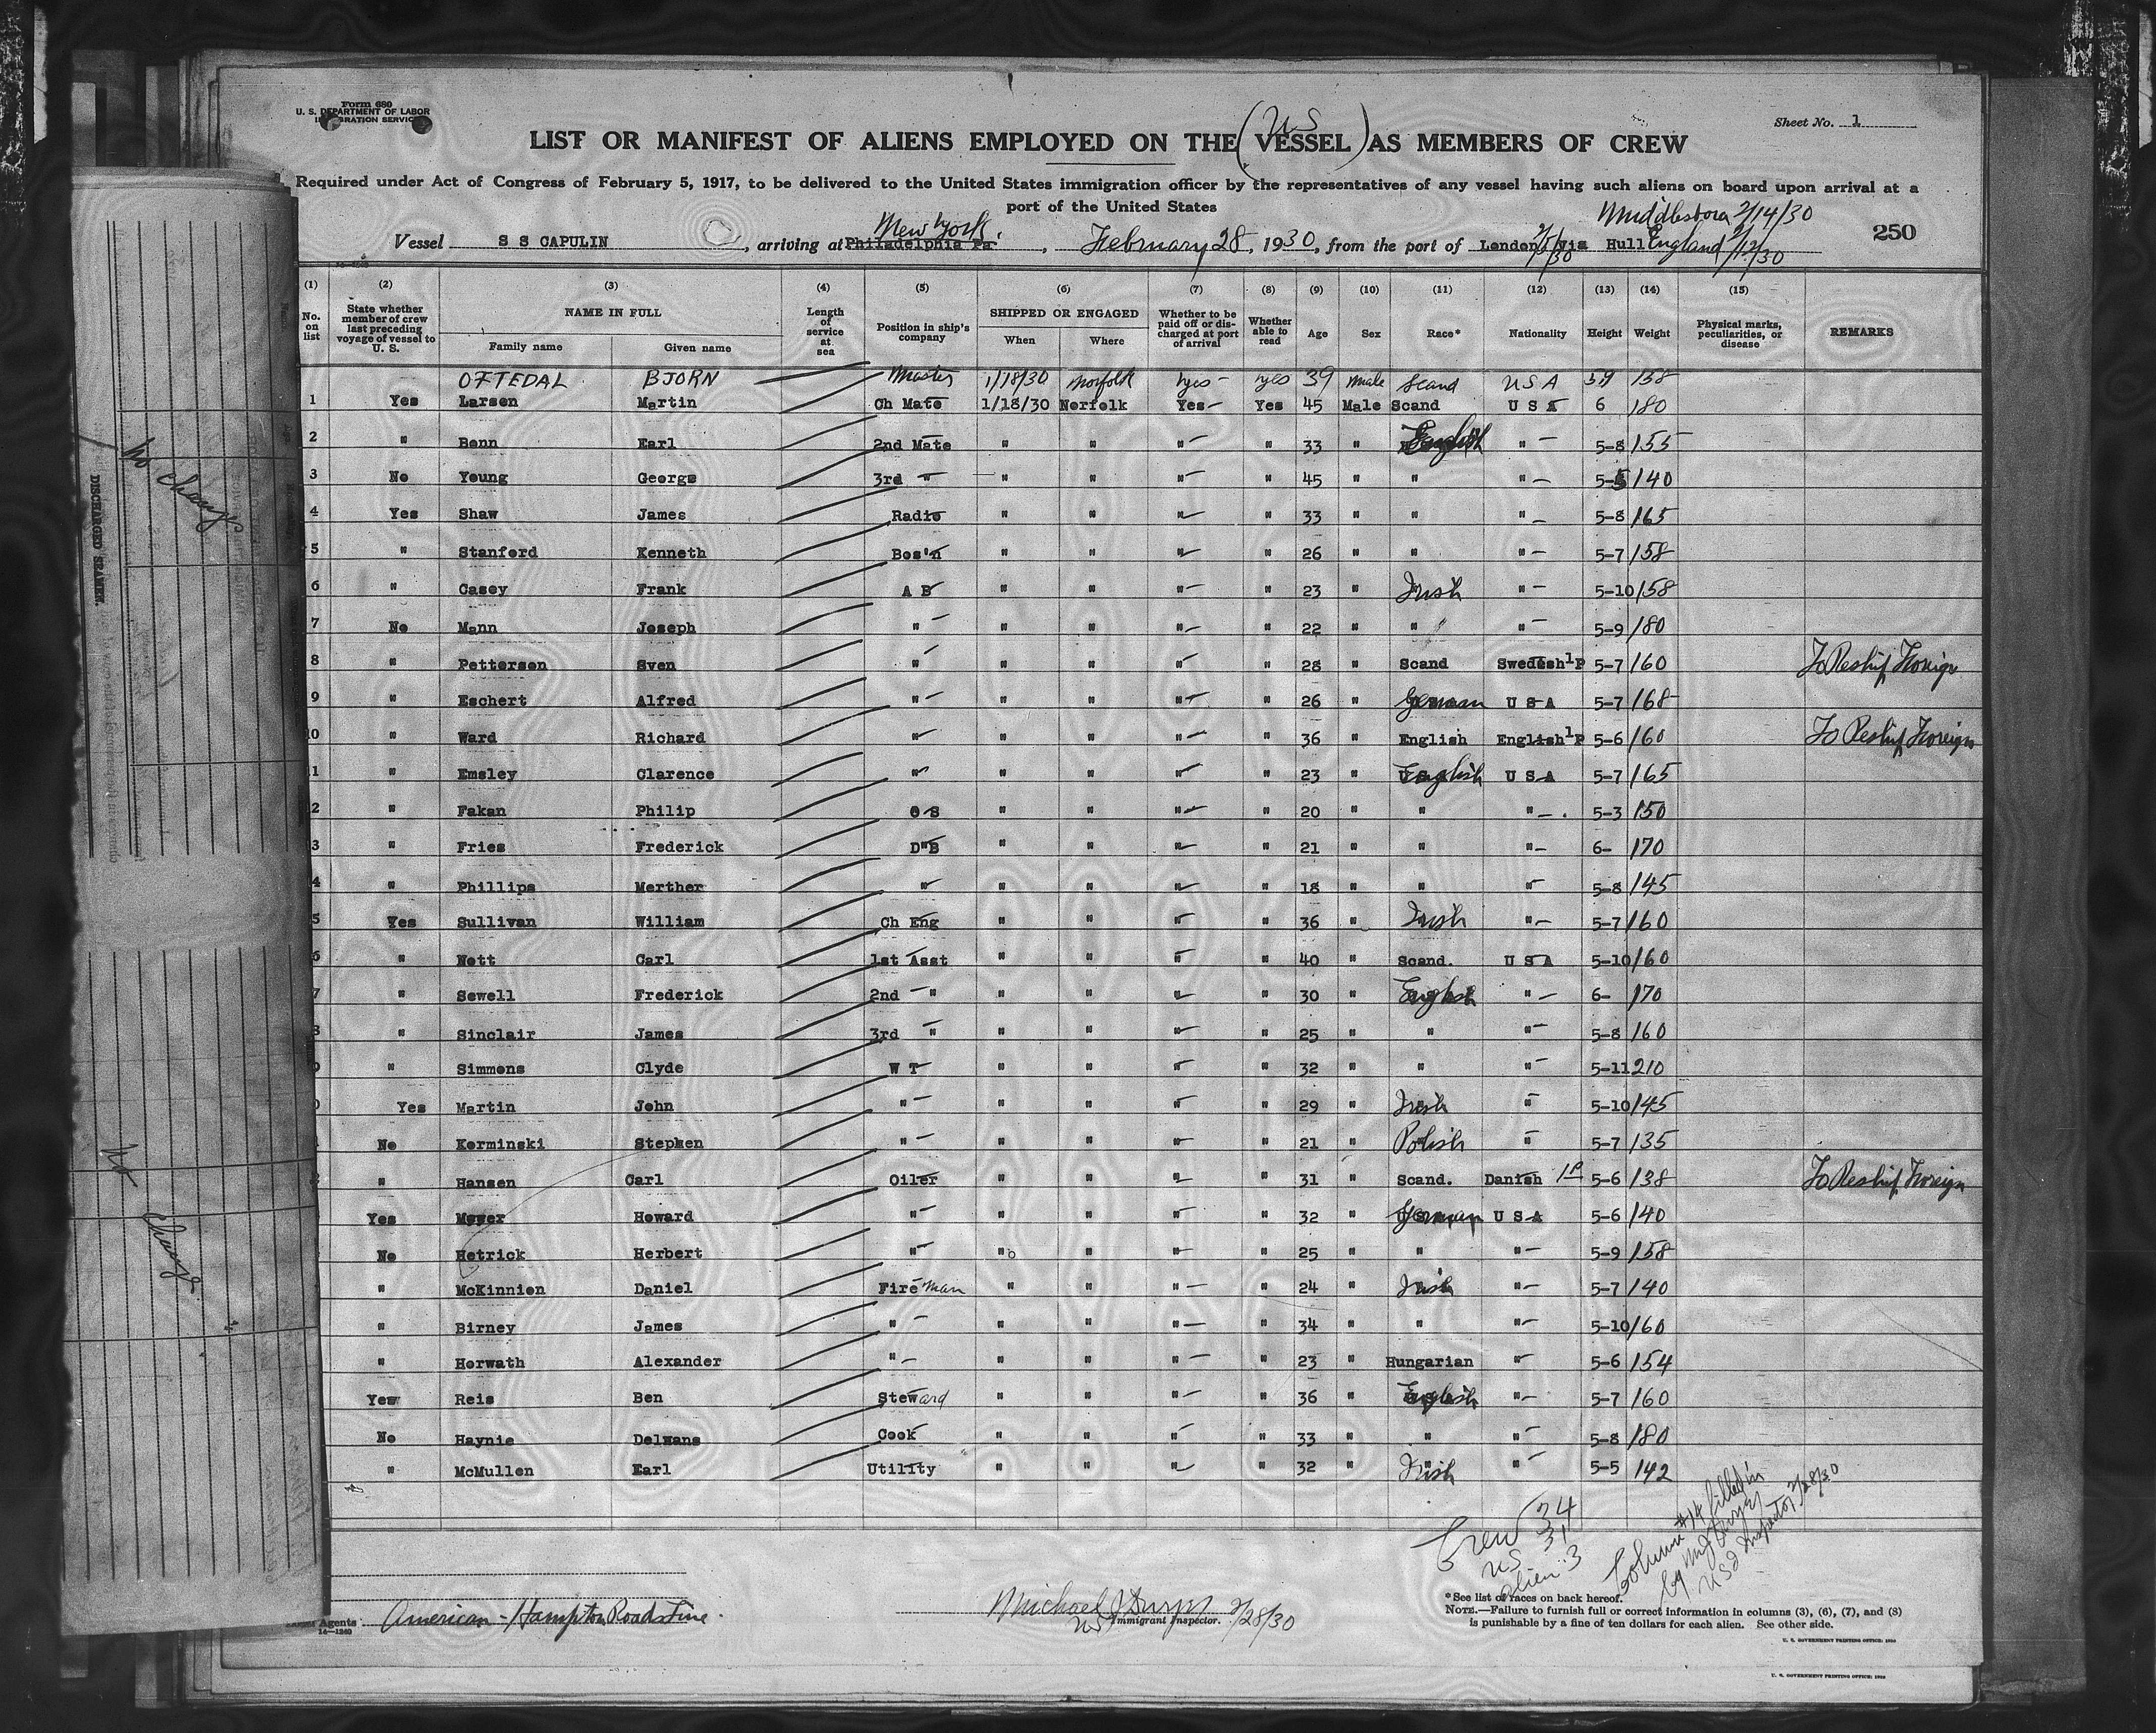 Form 680
U. S. DEPARTMENT OF LABOR
IMMIGRATION SERVICE
Sheet No. 1
LIST OR MANIFEST OF ALIENS EMPLOYED ON THE (US VESSEL) AS MEMBERS OF CREW
Required under Act of Congress of February 5, 1917, to be delivered to the United States immigration officer by the representatives of any vessel having such aliens on board upon arrival at a
port of the United States
Middlesboro 2/14/30
New York.
Vessel S S CAPULIN, arriving at Philadelphia Pa., February 28, 1930, from the port of London 2/5/30 Via Hull England 2/12/30
250
(1) (2) (3) (4) (5) (6) (7) (8) (9) (10) (11) (12) (13) (14) (15)
No. on list State whether member of crew last preceding voyage of vessel to U. S. NAME IN FULL Family name Given name Length of service at sea Position in ship's company SHIPPED OR ENGAGED When Where Whether to be paid off or discharged at port of arrival Whether able to read Age Sex Race* Nationality Height Weight Physical marks, peculiarities, or disease REMARKS
OFTEDAL BJORN Master 1/18/30 Norfolk yes - yes 39 male Scand U S A 5 9 158
1 Yes Larsen Martin Ch Mate 1/18/30 Norfolk Yes- Yes 45 Male Scand U S A 6 180
2 " Benn Earl 2nd Mate " " " " 33 " English " 5-8 155
3 No Young George 3rd " " " " " 45 " " " 5-5 140
4 Yes Shaw James Radio " " " " 33 " " " 5-8 165
5 " Stanford Kenneth Bos'n " " " " 26 " " " 5-7 158
6 " Casey Frank A B " " " " 23 " Irish " 5-10 158
7 No Mann Joseph " " " " " 22 " " " 5-9 180
8 " Pettersen Sven " " " " " 28 " Scand Swedesh 1P 5-7 160 To Reship Foreign
9 " Eschert Alfred " " " " " 26 " German U S A 5-7 168
10 " Ward Richard " " " " " 36 " English English 1P 5-6 160 To Reship Foreign
1 " Emsley Clarence " " " " " 23 " English U S A 5-7 165
2 " Fakan Philip O S " " " " 20 " " " 5-3 150
3 " Fries Frederick D"B " " " " 21 " " " 6- 170
4 " Phillips Merther " " " " " 18 " " " 5-8 145
5 Yes Sullivan William Ch Eng " " " " 36 " Irish " 5-7 160
6 " Nott Carl 1st Asst " " " " 40 " Scand. U S A 5-10 160
7 " Sewell Frederick 2nd " " " " " 30 " English " 6- 170
8 " Sinclair James 3rd " " " " " 25 " " " 5-8 160
" Simmons Clyde W T " " " " 32 " " " 5-11 210
0 Yes Martin John " " " " " 29 " Irish " 5-10 145
No Kerminski Stephen " " " " " 21 " Polish " 5-7 135
" Hansen Carl Oiler " " " " 31 " Scand. Danish 1P 5-6 138 To Reship Foreign
Yes Meyer Howard " " " " " 32 " German U S A 5-6 140
No Hetrick Herbert " " " " " 25 " " " 5-9 158
" McKinnien Daniel Fireman " " " " 24 " Irish " 5-7 140
" Birney James " " " " " 34 " " " 5-10 160
" Horwath Alexander " " " " " 23 " Hungarian " 5-6 154
Yes Reis Ben Steward " " " " 36 " English " 5-7 160
No Haynie Delmans Cook " " " " 33 " " " 5-8 180
" McMullen Earl Utility " " " " 32 " Irish " 5-5 142
Crew 34
US 31
alien 3
Column #14 filled in
by
US Inspector 2/28/30
American - Hampton Roads Line.
Agents
14-1240
Michael J
US Immigrant Inspector. 2/28/30
*See list of races on back hereof.
NOTE.—Failure to furnish full or correct information in columns (3), (6), (7), and (8)
is punishable by a fine of ten dollars for each alien. See other side.
U. S. GOVERNMENT PRINTING OFFICE: 1930
U. S. GOVERNMENT PRINTING OFFICE: 1929
DISCHARGED SEAMEN.
No change
No change